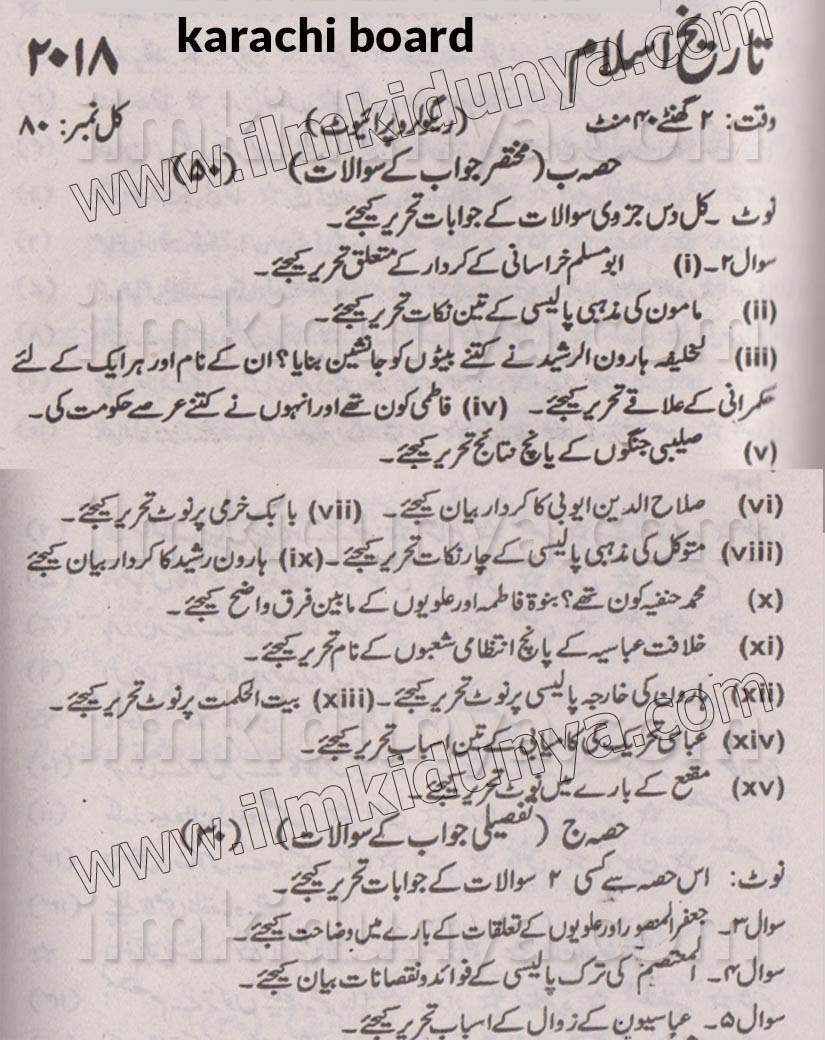 karachi board
تاریخ اسلام ۲۰۱۸
وقت: ۲ گھنٹے ۴۰ منٹ (ریگولر و پرائیوٹ) کل نمبر: ۸۰
حصہ ب (مختصر جواب کے سوالات) (۵۰)
نوٹ۔ کل دس جزوی سوالات کے جوابات تحریر کیجئے۔
سوال ۲۔ (i) ابو مسلم خراسانی کے کردار کے متعلق تحریر کیجئے۔
(ii) مامون کی مذہبی پالیسی کے تین نکات تحریر کیجئے۔
(iii) خلیفہ ہارون الرشید نے کتنے بیٹوں کو جانشین بنایا؟ ان کے نام اور ہر ایک کے لئے
حکمرانی کے علاقے تحریر کیجئے۔ (iv) فاطمی کون تھے اور انہوں نے کتنے عرصے حکومت کی۔
(v) صلیبی جنگوں کے پانچ نتائج تحریر کیجئے۔
(vi) صلاح الدین ایوبی کا کردار بیان کیجئے۔ (vii) بابک خرمی پر نوٹ تحریر کیجئے۔
(viii) متوکل کی مذہبی پالیسی کے چار نکات تحریر کیجئے۔ (ix) ہارون رشید کا کردار بیان کیجئے
(x) محمد حنفیہ کون تھے؟ بنوۃ فاطمہ اور علویوں کے مابین فرق واضح کیجئے۔
(xi) خلافت عباسیہ کے پانچ انتظامی شعبوں کے نام تحریر کیجئے۔
(xii) ہارون کی خارجہ پالیسی پر نوٹ تحریر کیجئے۔ (xiii) بیت الحکمت پر نوٹ تحریر کیجئے۔
(xiv) عباسی تحریک کی کامیابی کے تین اسباب تحریر کیجئے۔
(xv) مقنع کے بارے میں نوٹ تحریر کیجئے۔
حصہ ج (تفصیلی جواب کے سوالات) (۳۰)
نوٹ: اس حصہ سے کسی ۲ سوالات کے جوابات تحریر کیجئے۔
سوال ۳۔ جعفر المنصور اور علویوں کے تعلقات کے بارے میں وضاحت کیجئے۔
سوال ۴۔ المعتصم کی ترک پالیسی کے فوائد و نقصانات بیان کیجئے۔
سوال ۵۔ عباسیون کے زوال کے اسباب تحریر کیجئے۔
www.ilmkidunya.com
www.ilmkidunya.com
ilmkidunya.com
ilmkidunya.com
ilmkidunya.com
ilmkidunya.com
ilmkidunya.com